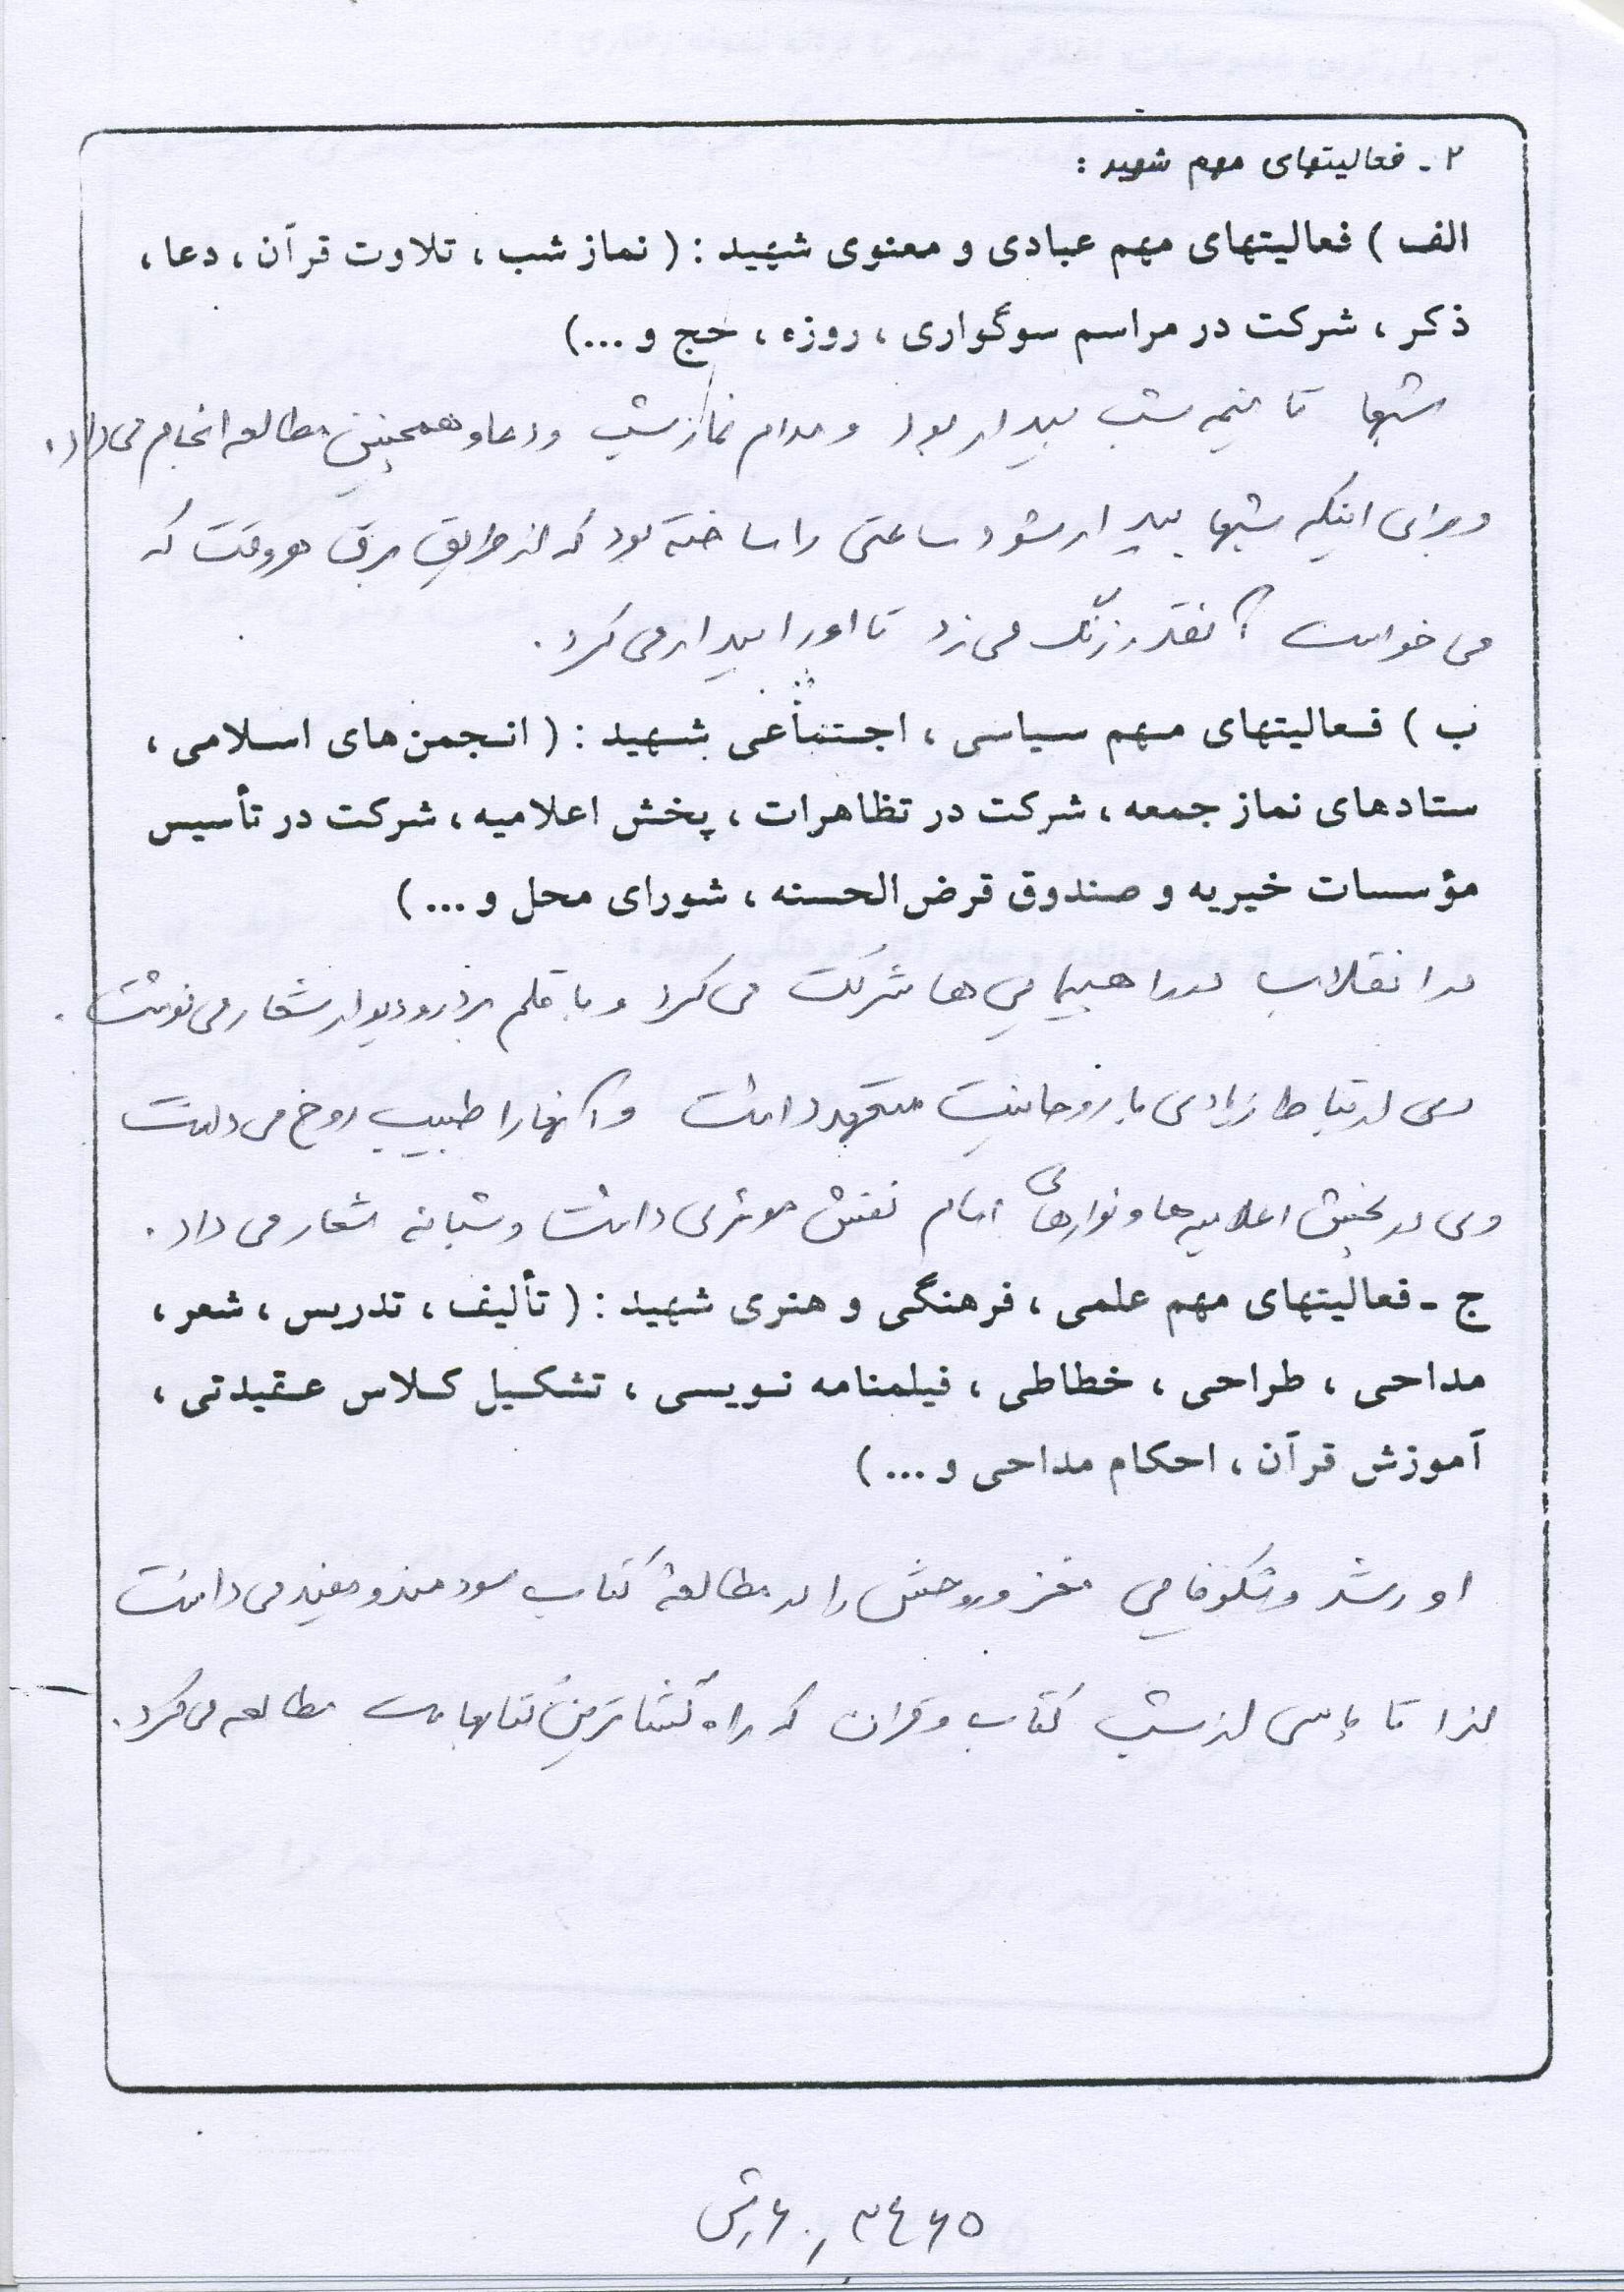 ۲ - فعالیتهای مهم شهید :
الف ) فعالیتهای مهم عبادی و معنوی شهید : ( نماز شب ، تلاوت قرآن ، دعا ،
ذکر ، شرکت در مراسم سوگواری ، روزه ، حج و ...)
شبها تا نیمه شب بیدار بود و مدام نماز شب و دعا و همچنین مطالعه انجام می داد .
و برای اینکه شبها بیدار شود ساعتی را ساخته بود که از طریق برق هر وقت که
می خواست آنقدر زنگ می زد تا او را بیدار می کرد .
ب ) فعالیتهای مهم سیاسی ، اجتماعی شهید : ( انجمن‌های اسلامی ،
ستادهای نماز جمعه ، شرکت در تظاهرات ، پخش اعلامیه ، شرکت در تأسیس
مؤسسات خیریه و صندوق قرض‌الحسنه ، شورای محل و ... )
در انقلاب در راهپیمایی ها شرکت می کرد و با قلم بر در و دیوار شعار می نوشت .
وی ارتباط زیادی با روحانیت متعهد داشت و آنها را طبیب روح می دانست
وی در پخش اعلامیه ها و نوارهای امام نقش موثری داشت و شبانه شعار می داد .
ج - فعالیتهای مهم علمی ، فرهنگی و هنری شهید : ( تألیف ، تدریس ، شعر ،
مداحی ، طراحی ، خطاطی ، فیلمنامه نویسی ، تشکیل کلاس عقیدتی ،
آموزش قرآن ، احکام مداحی و ... )
او رشد و شکوفایی مغز و روحش را در مطالعهٔ کتاب سودمند و مفید می دانست
لذا تا پاسی از شب کتاب و قران که راه گشاترین کتابهاست مطالعه می کرد .
۳۴۶۵